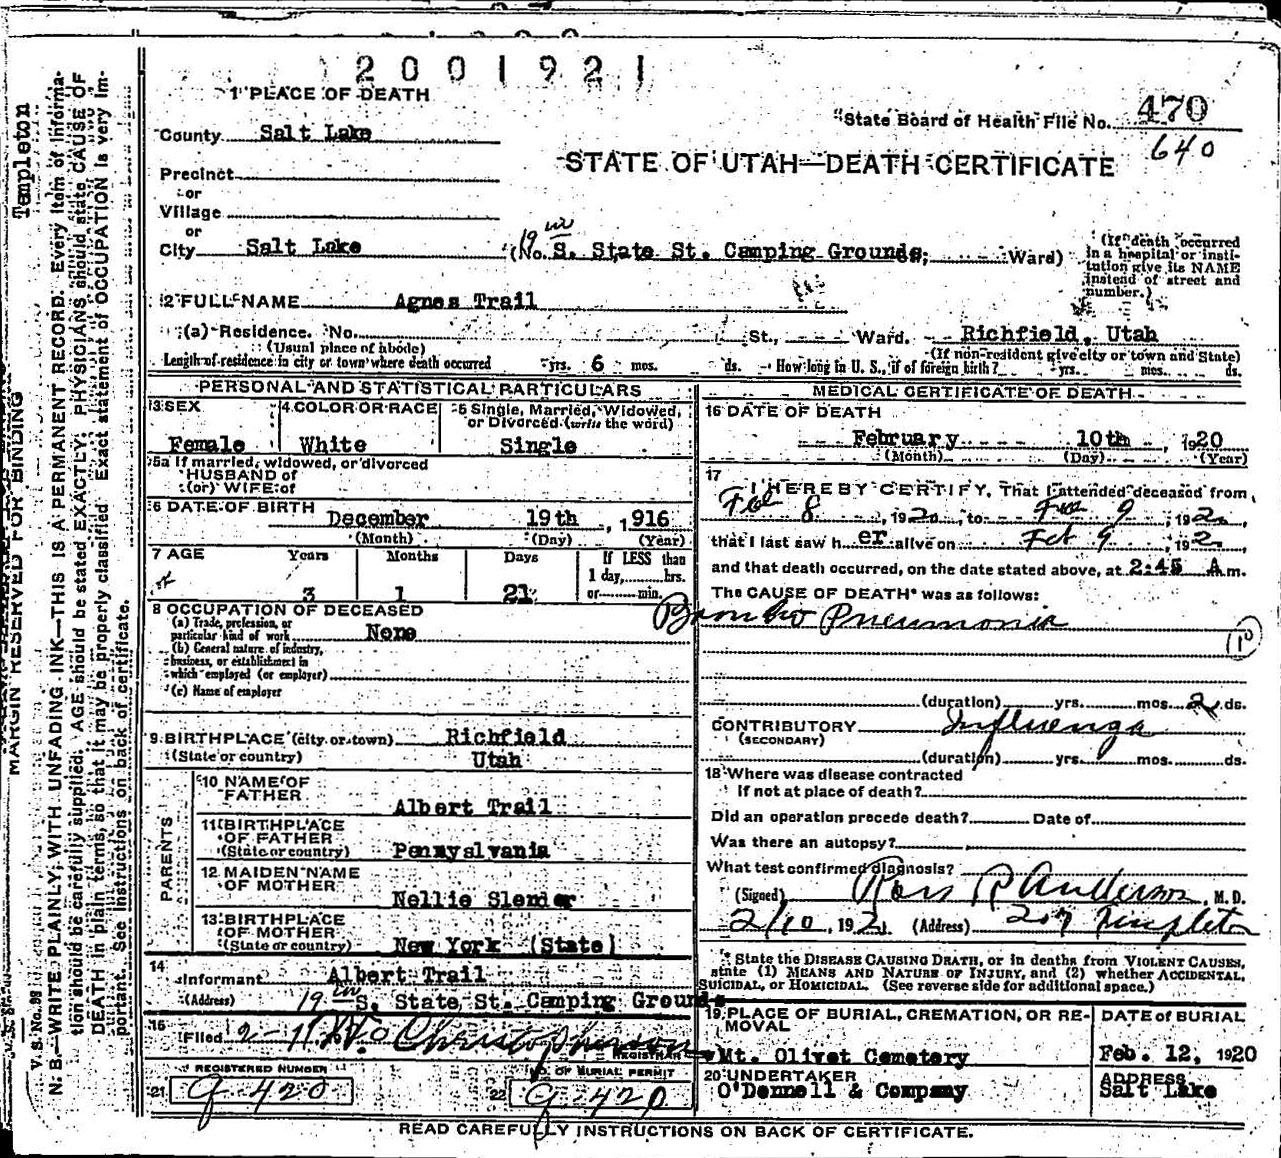 2001921
1 PLACE OF DEATH
State Board of Health File No. 470
640
County Salt Lake
STATE OF UTAH—DEATH CERTIFICATE
Precinct
or
Village
or
City Salt Lake (No. 19 S. State St. Camping Grounds; Ward)
(If death occurred in a hospital or institution give its NAME instead of street and number.)
2 FULL NAME Agnes Trail
(a) Residence. No. St., Ward. Richfield, Utah
(Usual place of abode) (If non-resident give city or town and State)
Length of residence in city or town where death occurred yrs. 6 mos. ds. How long in U. S., if of foreign birth? yrs. mos. ds.
PERSONAL AND STATISTICAL PARTICULARS
3 SEX 4 COLOR OR RACE 5 Single, Married, Widowed, or Divorced (write the word)
Female White Single
5a If married, widowed, or divorced
HUSBAND of
(or) WIFE of
6 DATE OF BIRTH
December 19th, 1916
(Month) (Day) (Year)
7 AGE Years Months Days If LESS than
1 day, hrs.
or min.
3 1 21
8 OCCUPATION OF DECEASED
(a) Trade, profession, or
particular kind of work None
(b) General nature of industry,
business, or establishment in
which employed (or employer)
(c) Name of employer
9 BIRTHPLACE (city or town) Richfield
(State or country) Utah
PARENTS
10 NAME OF
FATHER Albert Trail
11 BIRTHPLACE
OF FATHER
(State or country) Pennyslvania
12 MAIDEN NAME
OF MOTHER Nellie Slender
13 BIRTHPLACE
OF MOTHER
(State or country) New York (State)
14
Informant Albert Trail
(Address) 19 S. State St. Camping Grounds
15
Filed 2-11 Christopherson
REGISTRAR
REGISTERED NUMBER NO. OF BURIAL PERMIT
21 G-420 22 G-420
MEDICAL CERTIFICATE OF DEATH
16 DATE OF DEATH
February 10th, 1920
(Month) (Day) (Year)
17
I HEREBY CERTIFY, That I attended deceased from
Feb 8, 1920, to Feb 9, 192
that I last saw her alive on Feb 9, 192
and that death occurred, on the date stated above, at 2:45 A m.
The CAUSE OF DEATH* was as follows:
Broncho Pneumonia
10
(duration) yrs. mos. 2 ds.
CONTRIBUTORY Influenza
(SECONDARY)
(duration) yrs. mos. ds.
18 Where was disease contracted
If not at place of death?
Did an operation precede death? Date of
Was there an autopsy?
What test confirmed diagnosis?
(Signed) Ross R Anderson, M. D.
2/10, 192 (Address) 207 Templeton
* State the DISEASE CAUSING DEATH, or in deaths from VIOLENT CAUSES,
state (1) MEANS AND NATURE OF INJURY, and (2) whether ACCIDENTAL,
SUICIDAL, or HOMICIDAL. (See reverse side for additional space.)
19 PLACE OF BURIAL, CREMATION, OR REMOVAL DATE OF BURIAL
Mt. Olivet Cemetery Feb. 12, 1920
20 UNDERTAKER ADDRESS
O'Donnell & Company Salt Lake
READ CAREFULLY INSTRUCTIONS ON BACK OF CERTIFICATE.
Templeton
MARGIN RESERVED FOR BINDING
V. S. No. 98
N. B.—WRITE PLAINLY, WITH UNFADING INK—THIS IS A PERMANENT RECORD. Every item of information
should be carefully supplied. AGE should be stated EXACTLY. PHYSICIANS should state CAUSE OF
DEATH in plain terms, so that it may be properly classified. Exact statement of OCCUPATION is very important.
See instructions on back of certificate.